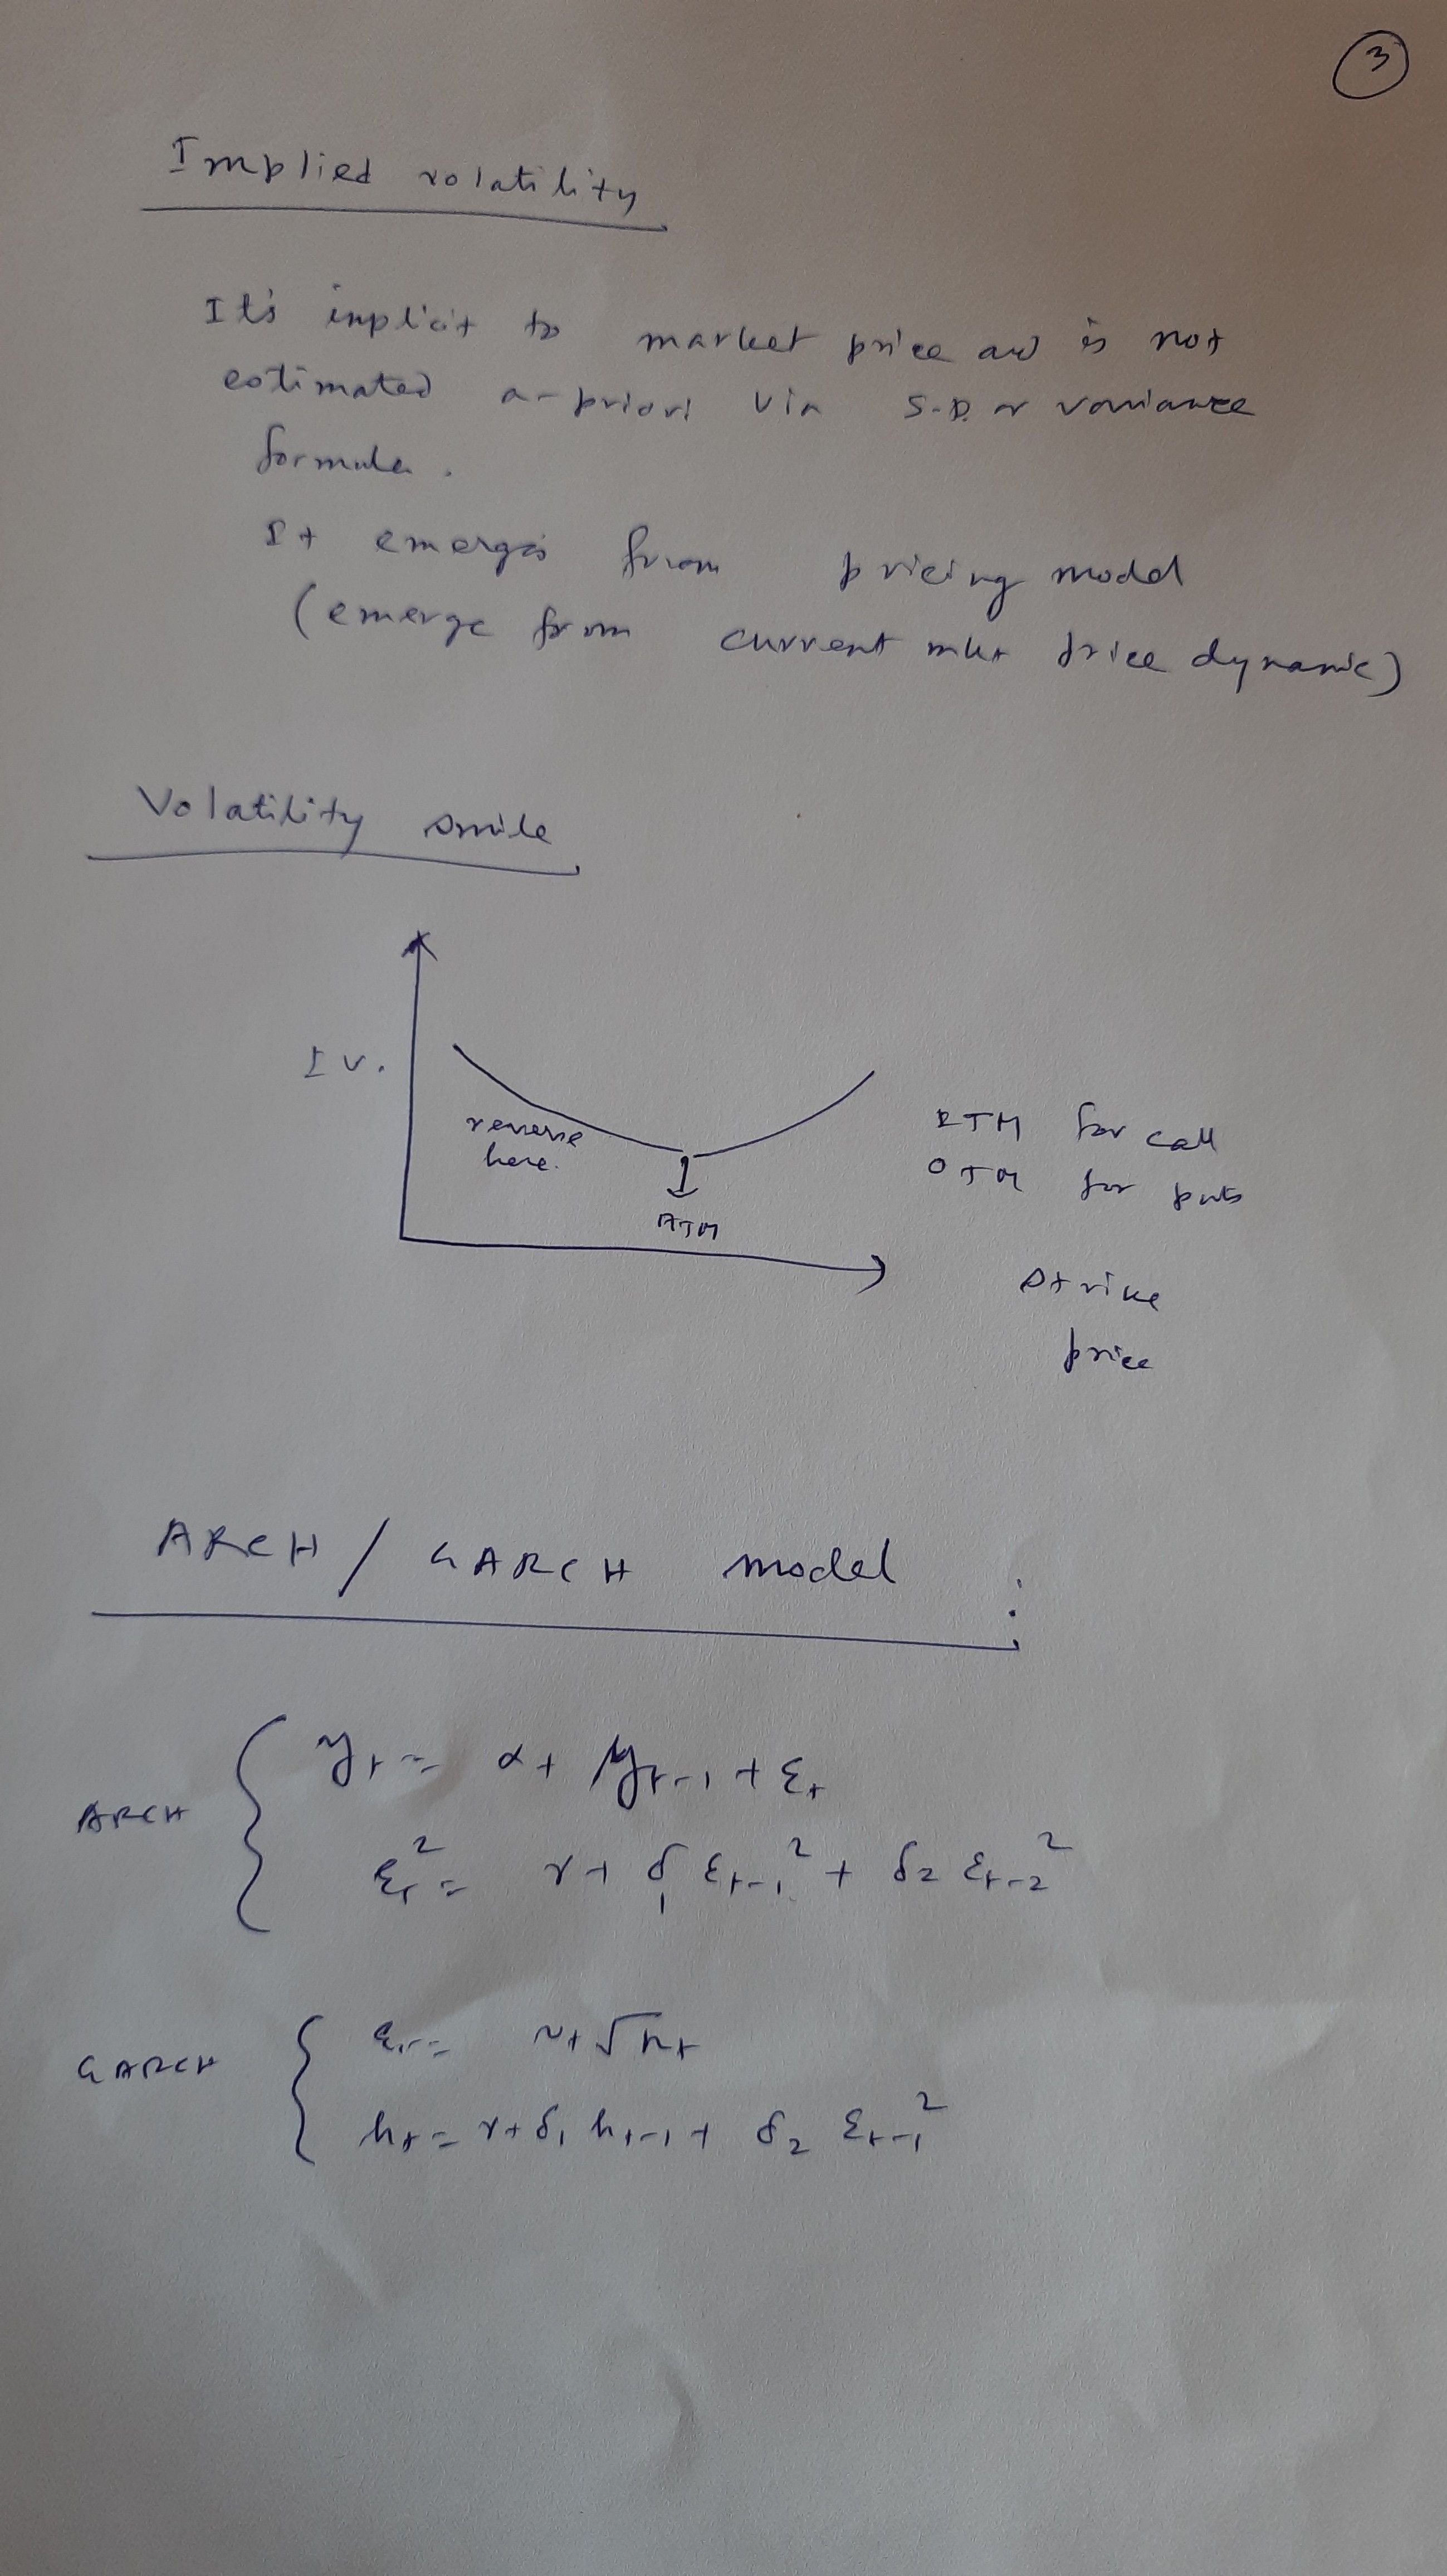 3
Implied volatility
It's implicit to market price and is not
estimated a-priori via S.D. or variance
formula.
It emerges from pricing model
(emerge from current mkt price dynamic)
Volatility smile
I V.
reverse
here.
ATM
ITM for call
OTM for puts
Strike
price
ARCH / GARCH model :
ARCH
yt = α + yt-1 + εt
εt² = γ + δ1 εt-1² + δ2 εt-2²
GARCH
εt = √ht
ht = γ + δ1 ht-1 + δ2 εt-1²